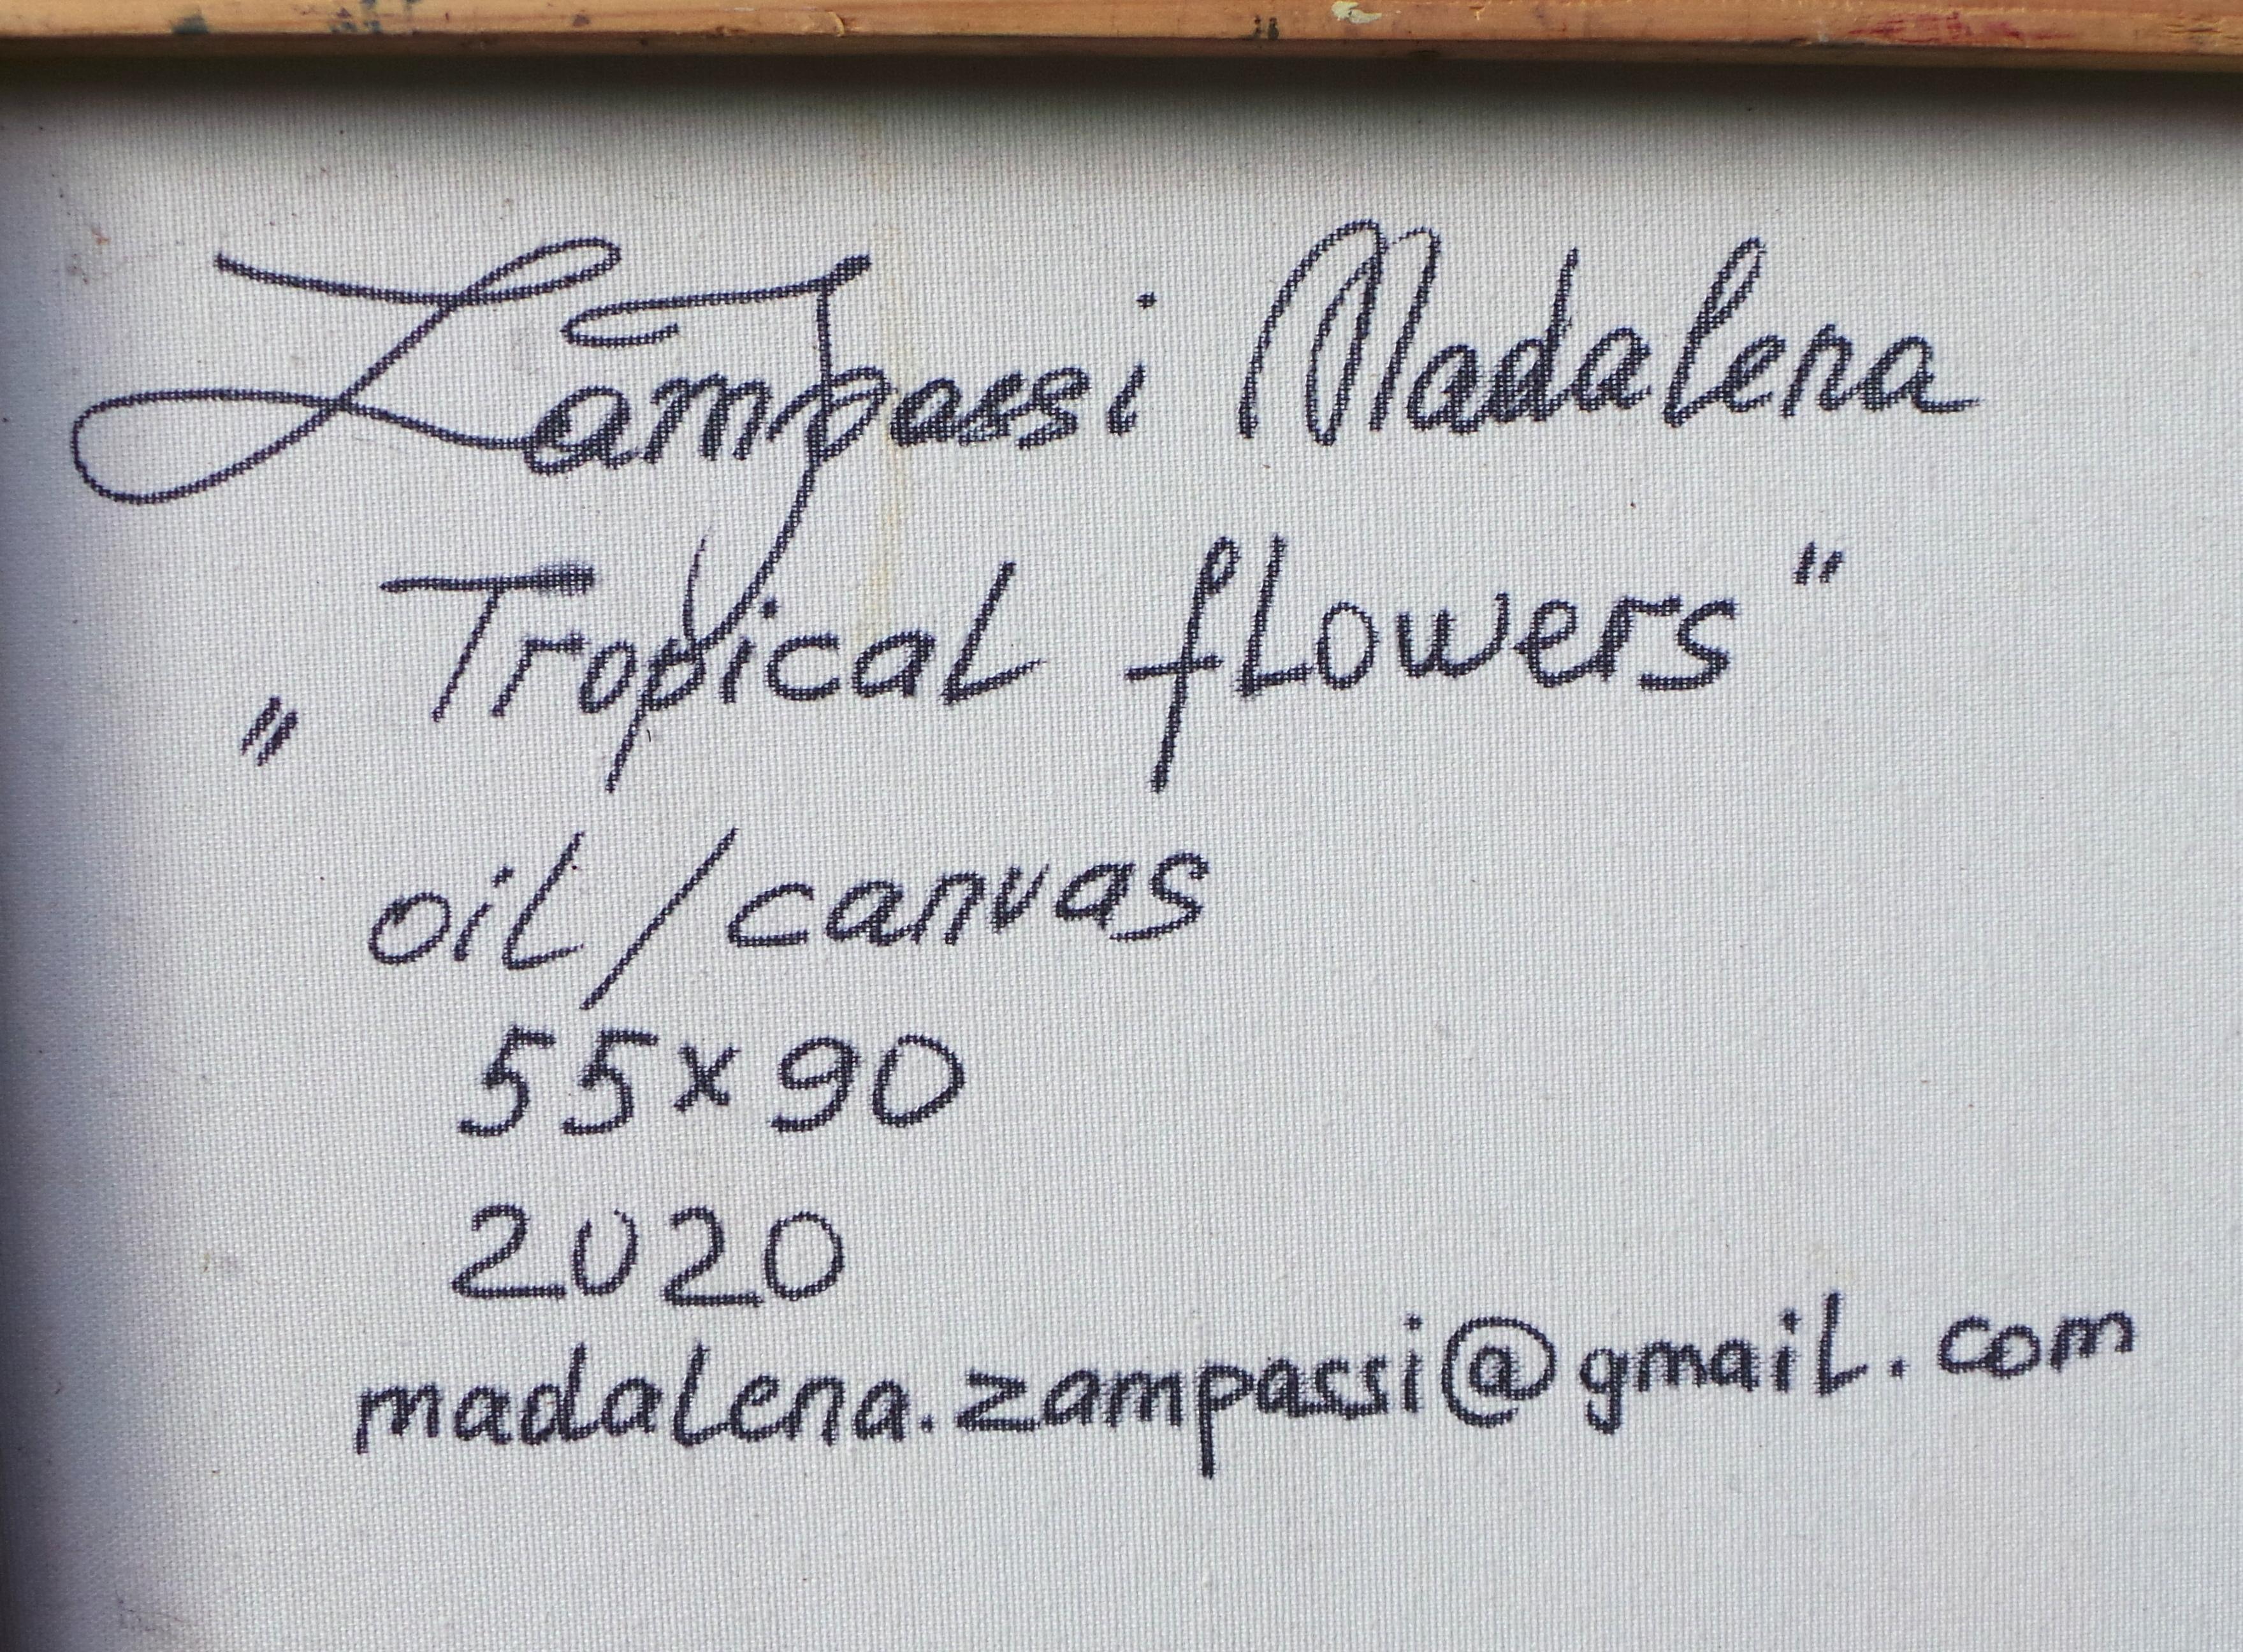 Zampassi Madalena
„Tropical flowers"
oil/canvas
55x90
2020
madalena.zampassi@gmail.com